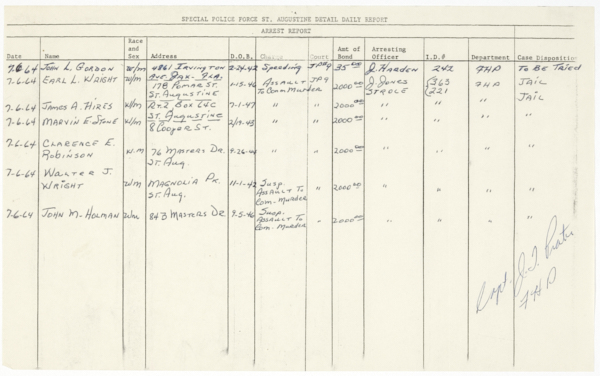 SPECIAL POLICE FORCE ST. AUGUSTINE DETAIL DAILY REPORT
ARREST REPORT
Date Name Race and Sex Address D.O.B. Charge Court Amt of Bond Arresting Officer I.D.# Department Case Disposition
7-6-64 JOHN L. GORDON W/M 4861 IRVINGTON 2-24-42 Speeding 35 00 J. HARDEN 242 FHP TO BE TRIED
AVE JAX. FLA.
7-6-64 EARL L. WRIGHT W/M 17B POMAR ST. ASSAULT 2000 00 J. JONES 365 FHP JAIL
ST. AUGUSTINE To Com. Murder STEELE 221
7-6-64 JAMES A. HIRES W/M Rt 2 Box 64C 7-1-47 " " 2000 00 " " " JAIL
ST. AUGUSTINE
7-6-64 MARVIN E. W/M 8 COOPER ST. 2-19-43 " " 2000 00 " " " "
7-6-64 CLARENCE E.
ROBINSON W.M 76 MASTERS DR. 9-26-44 " " 2000 00 " " " "
ST. AUG.
7-6-64 WALTER J.
WRIGHT W/M MAGNOLIA PK. 11-1-42 Susp. " 2000 00 " " " "
ST. AUG. ASSAULT TO
Com. Murder
7-6-64 JOHN M. HOLMAN W/M 843 MASTERS DR. 9-5-46 Susp. " 2000 00 " " " "
ASSAULT To
Com. Murder
Capt. J. I.
FHP